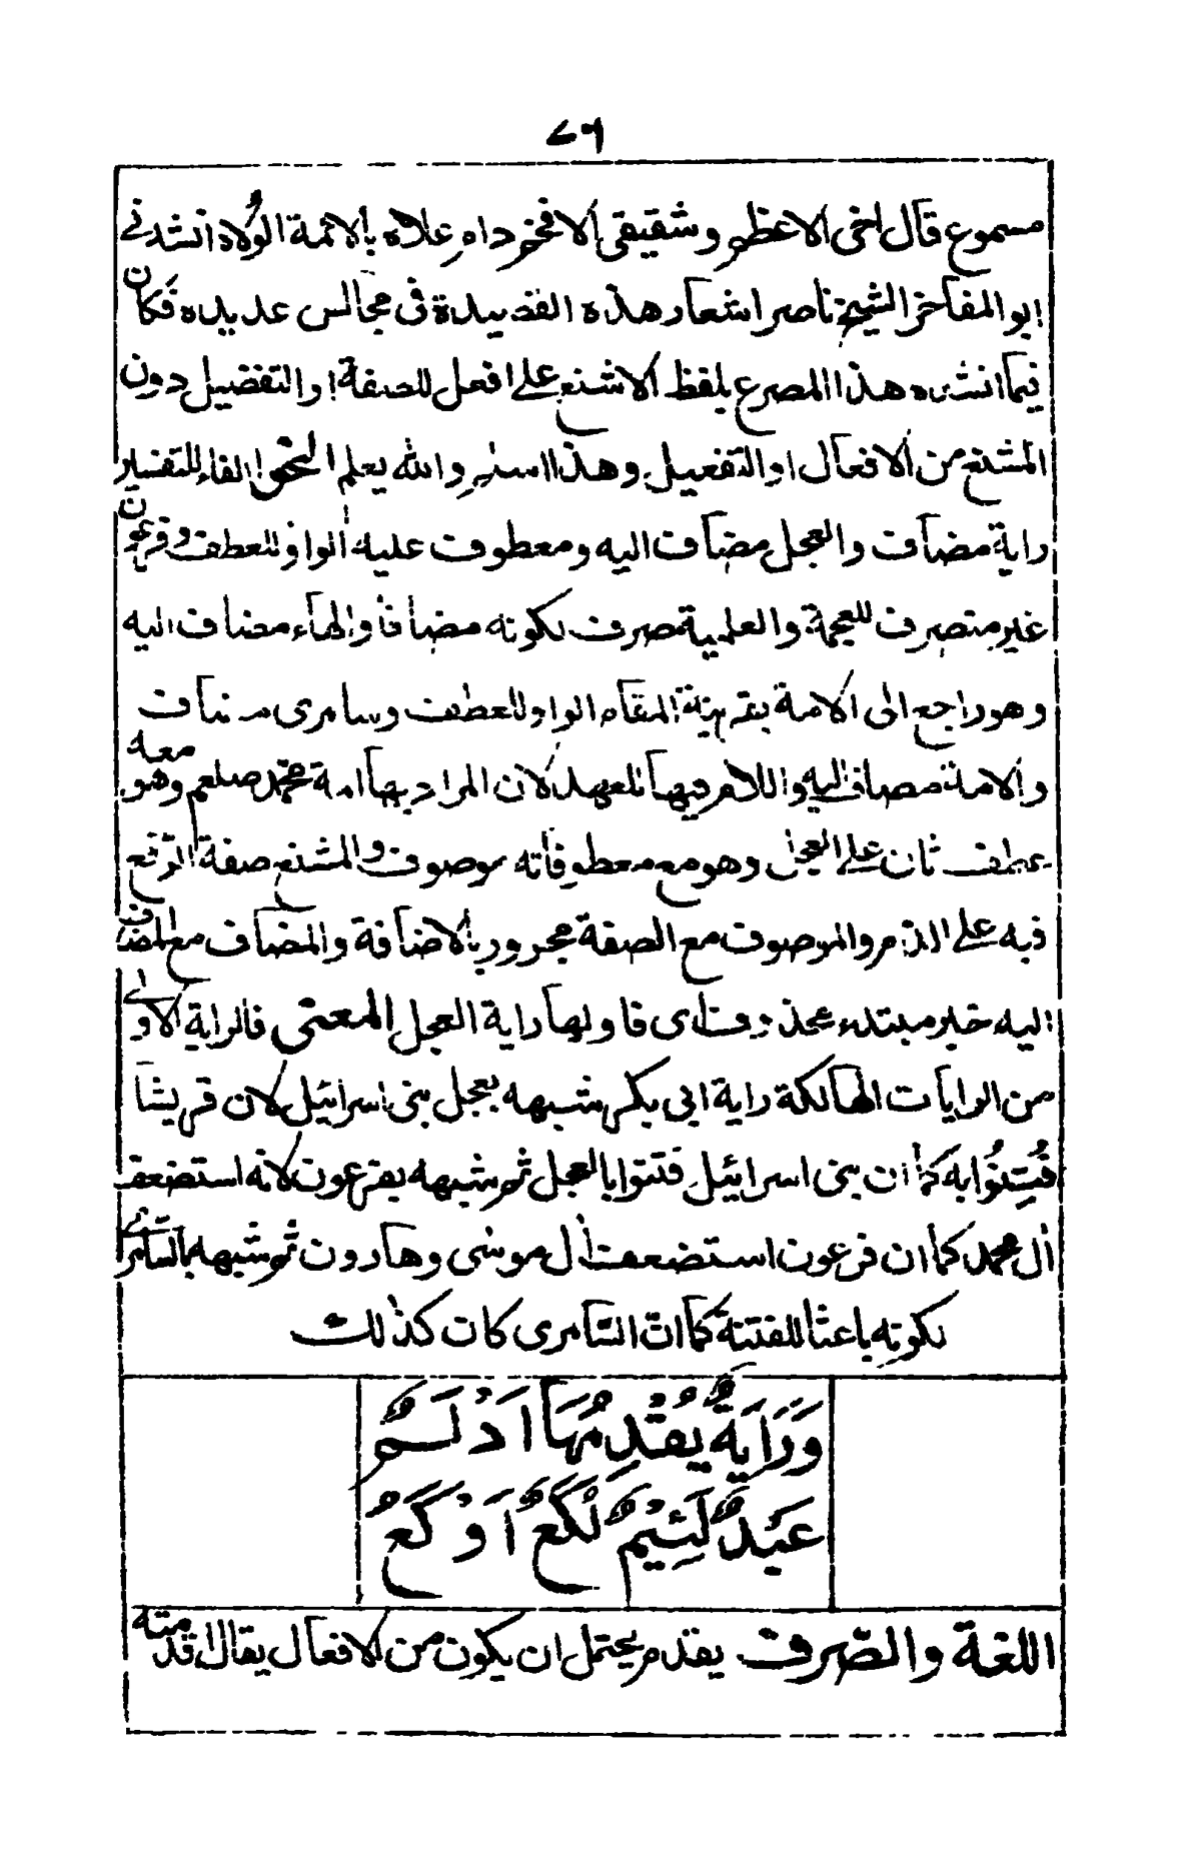 ٧٦
مسموع قال اخى الاعظم وشقيقى الافخم دام علاه بالائمة الولاة انشدنى
ابو المفاخر الشيخ ناصر اشعار هذه القصيدة فى مجالس عديده فكان
فيما انشده هذا المصرع بلفظ الاشنع على افعل للصفة او التفضيل دون
المشنع من الافعال او التفعيل وهذا اسد والله يعلم النحو الفاء للتفسير
راية مضاف والعجل مضاف اليه ومعطوف عليه الواو للعطف وفرعون
غير منصرف للعجمة والعلمية صرف لكونه مضافا والهاء مضاف اليه
وهو راجع الى الامة بقرينة المقام الواو للعطف وسامرى مضاف
والامة مضاف اليه واللام فيها للعهد لان المراد بها امة محمد صلعم وهو معه
عطف ثان على العجل وهو مع معطوفاته موصوف والمشنع صفة الرفع
فيه على الذم والموصوف مع الصفة مجرور بالاضافة والمضاف مع المضاف
اليه خبر مبتدء محذوف اى فاولها راية العجل المعنى فالراية الاولى
من الرايات الهالكة راية ابى بكر شبهه بعجل بنى اسرائيل لان قريشا
فُتِنُوا به كما ان بنى اسرائيل فتنوا بالعجل ثم شبهه بفرعون لانه استضعف
ال محمد كما ان فرعون استضعف ال موسى وهارون ثم شبهه بالسامرى
لكونه باعثا للفتنة كما ان السامرى كان كذلك
وَرَايَةٌ يُقْدِمُهَا اَدْلَمٌ
عَبْدٌ لَئِيْمٌ لُكَعٌ اَوْكَعُ
اللغة والصّرف يقدم يحتمل ان يكون من الافعال يقال اقدمته